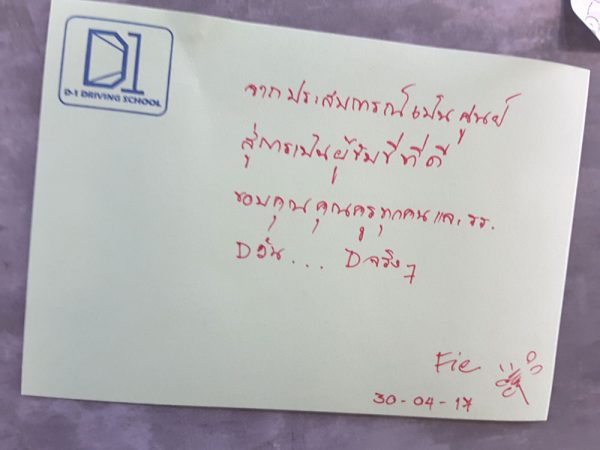 D1
D-1 DRIVING SCHOOL
จากประสบการณ์เป็นศูนย์
สู่การเป็นผู้ขับขี่ที่ดี
ขอบคุณคุณครูทุกคนและ รร.
Dวัน... Dจริงๆ
Fie
30-04-17